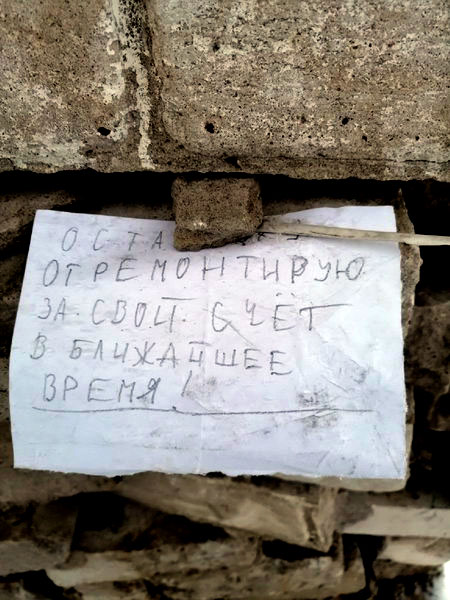 ОТРЕМОНТИРУЮ
ЗА СВОЙ СЧЁТ
В БЛИЖАЙШЕЕ
ВРЕМЯ!